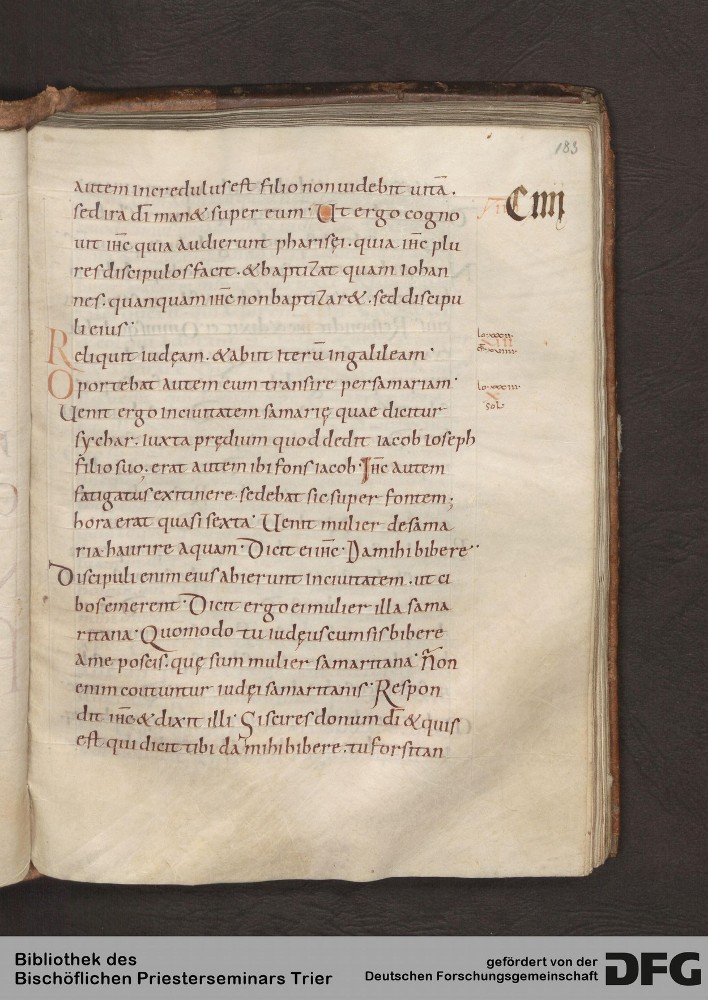 183
autem incredulus est filio non uidebit uitā.
sed ira dī man& super eum. Ut ergo cogno
uit ihc quia audierunt pharisęi. quia ihc plu
res discipulos facit. & baptizat quam iohan
nes. quanquam ihc non baptizar&. sed discipu
li eius.
Reliquit iudęam. & abiit iterū in galileam.
Oportebat autem eum transire per samariam.
Uenit ergo in ciuitatem samarię quae dicitur
sychar. iuxta prędium quod dedit iacob ioseph
filio suo. erat autem ibi fons iacob. Ihc autem
fatigatus ex itinere. sedebat sic super fontem;
hora erat quasi sexta. Uenit mulier de sama
ria haurire aquam. Dicit ei ihc. Da mihi bibere.
Discipuli enim eius abierunt in ciuitatem. ut ci
bos emerent. Dicit ergo ei mulier illa sama
ritana. Quomodo tu iudęus cum sis bibere
a me poscis. quę sum mulier samaritana. Non
enim coutuntur iudęi samaritanis. Respon
dit ihc & dixit illi. Si scires donum dī & quis
est qui dicit tibi da mihi bibere. tu forsitan
CIIII
Bibliothek des
Bischöflichen Priesterseminars Trier
gefördert von der
Deutschen Forschungsgemeinschaft
DFG